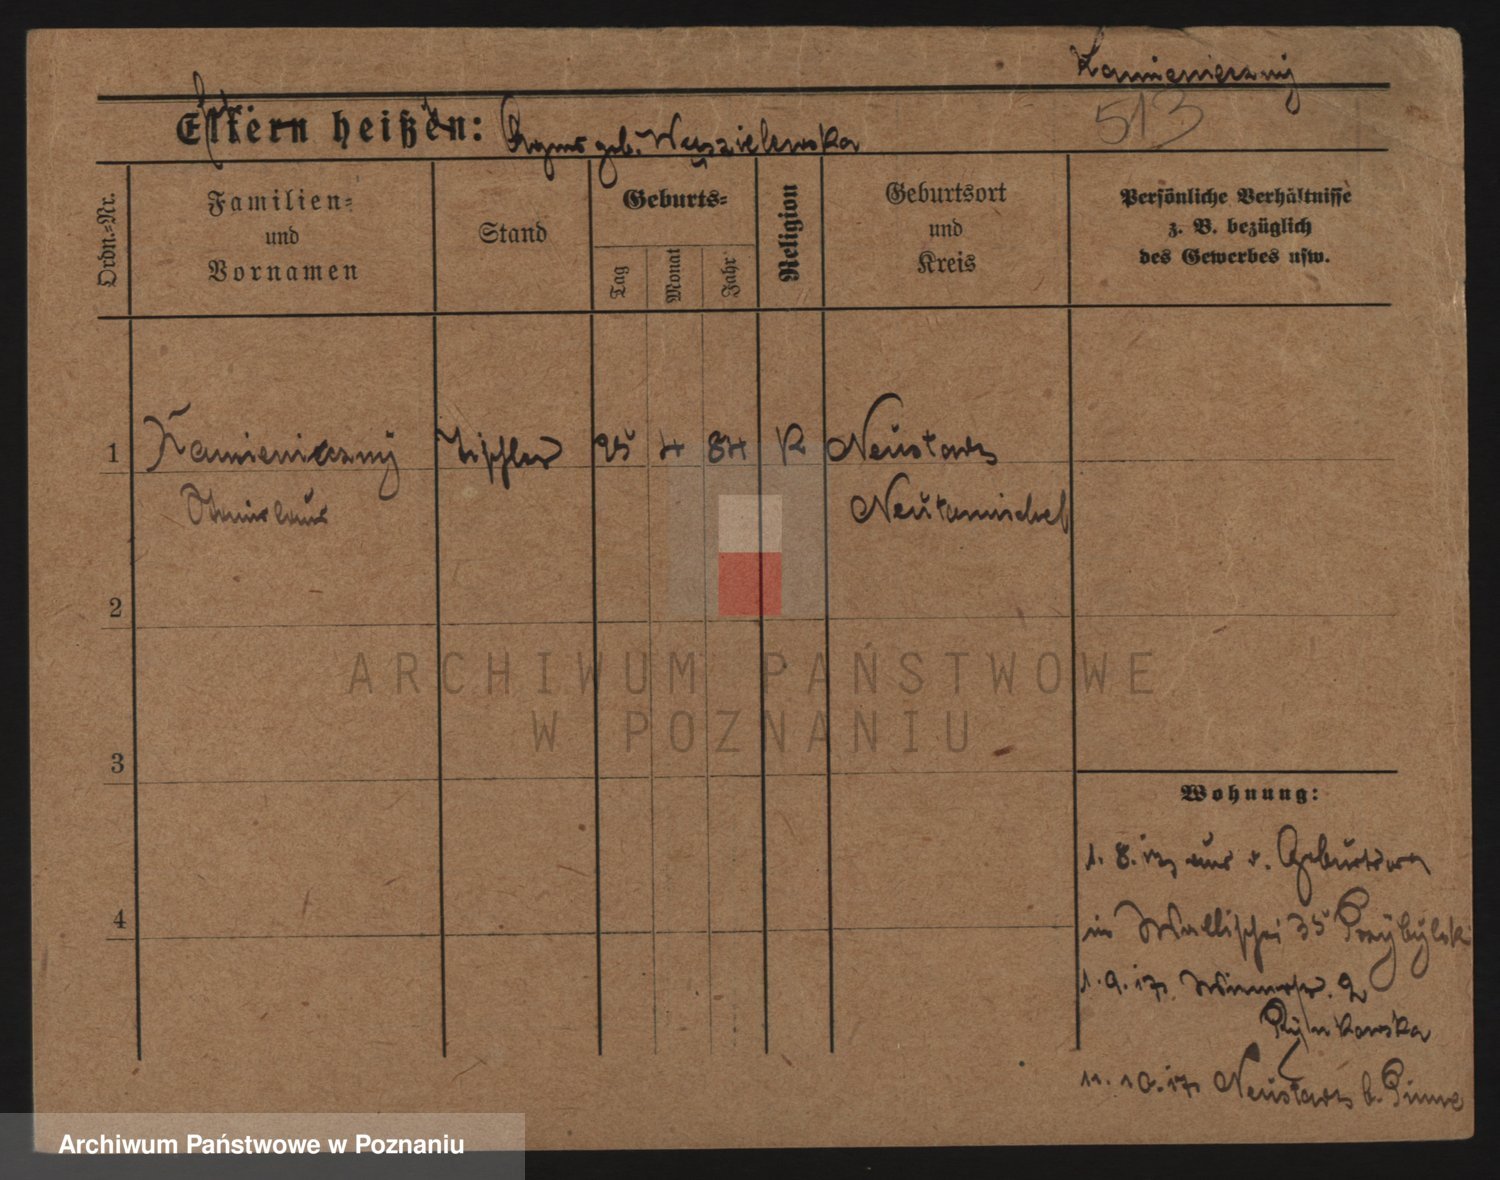 Kamienieczny
513
Eltern heißen: geb.
Ordn.-Nr.
Familien-
und
Vornamen
Stand
Geburts-
Tag
Monat
Jahr
Religion
Geburtsort
und
Kreis
Persönliche Verhältnisse
z. B. bezüglich
des Gewerbes usw.
1 Kamienieczny Tischler 25 4 84 K Neustadt
Stanislaus Neutomischel
2
3
4
Wohnung:
1. 8. aus d. Geburtsort
in Wallischei 35 Przybylski
1. 9. 2
Rynkowska
11. 10. Neustadt b. Pinne
ARCHIWUM PAŃSTWOWE
W POZNANIU
Archiwum Państwowe w Poznaniu